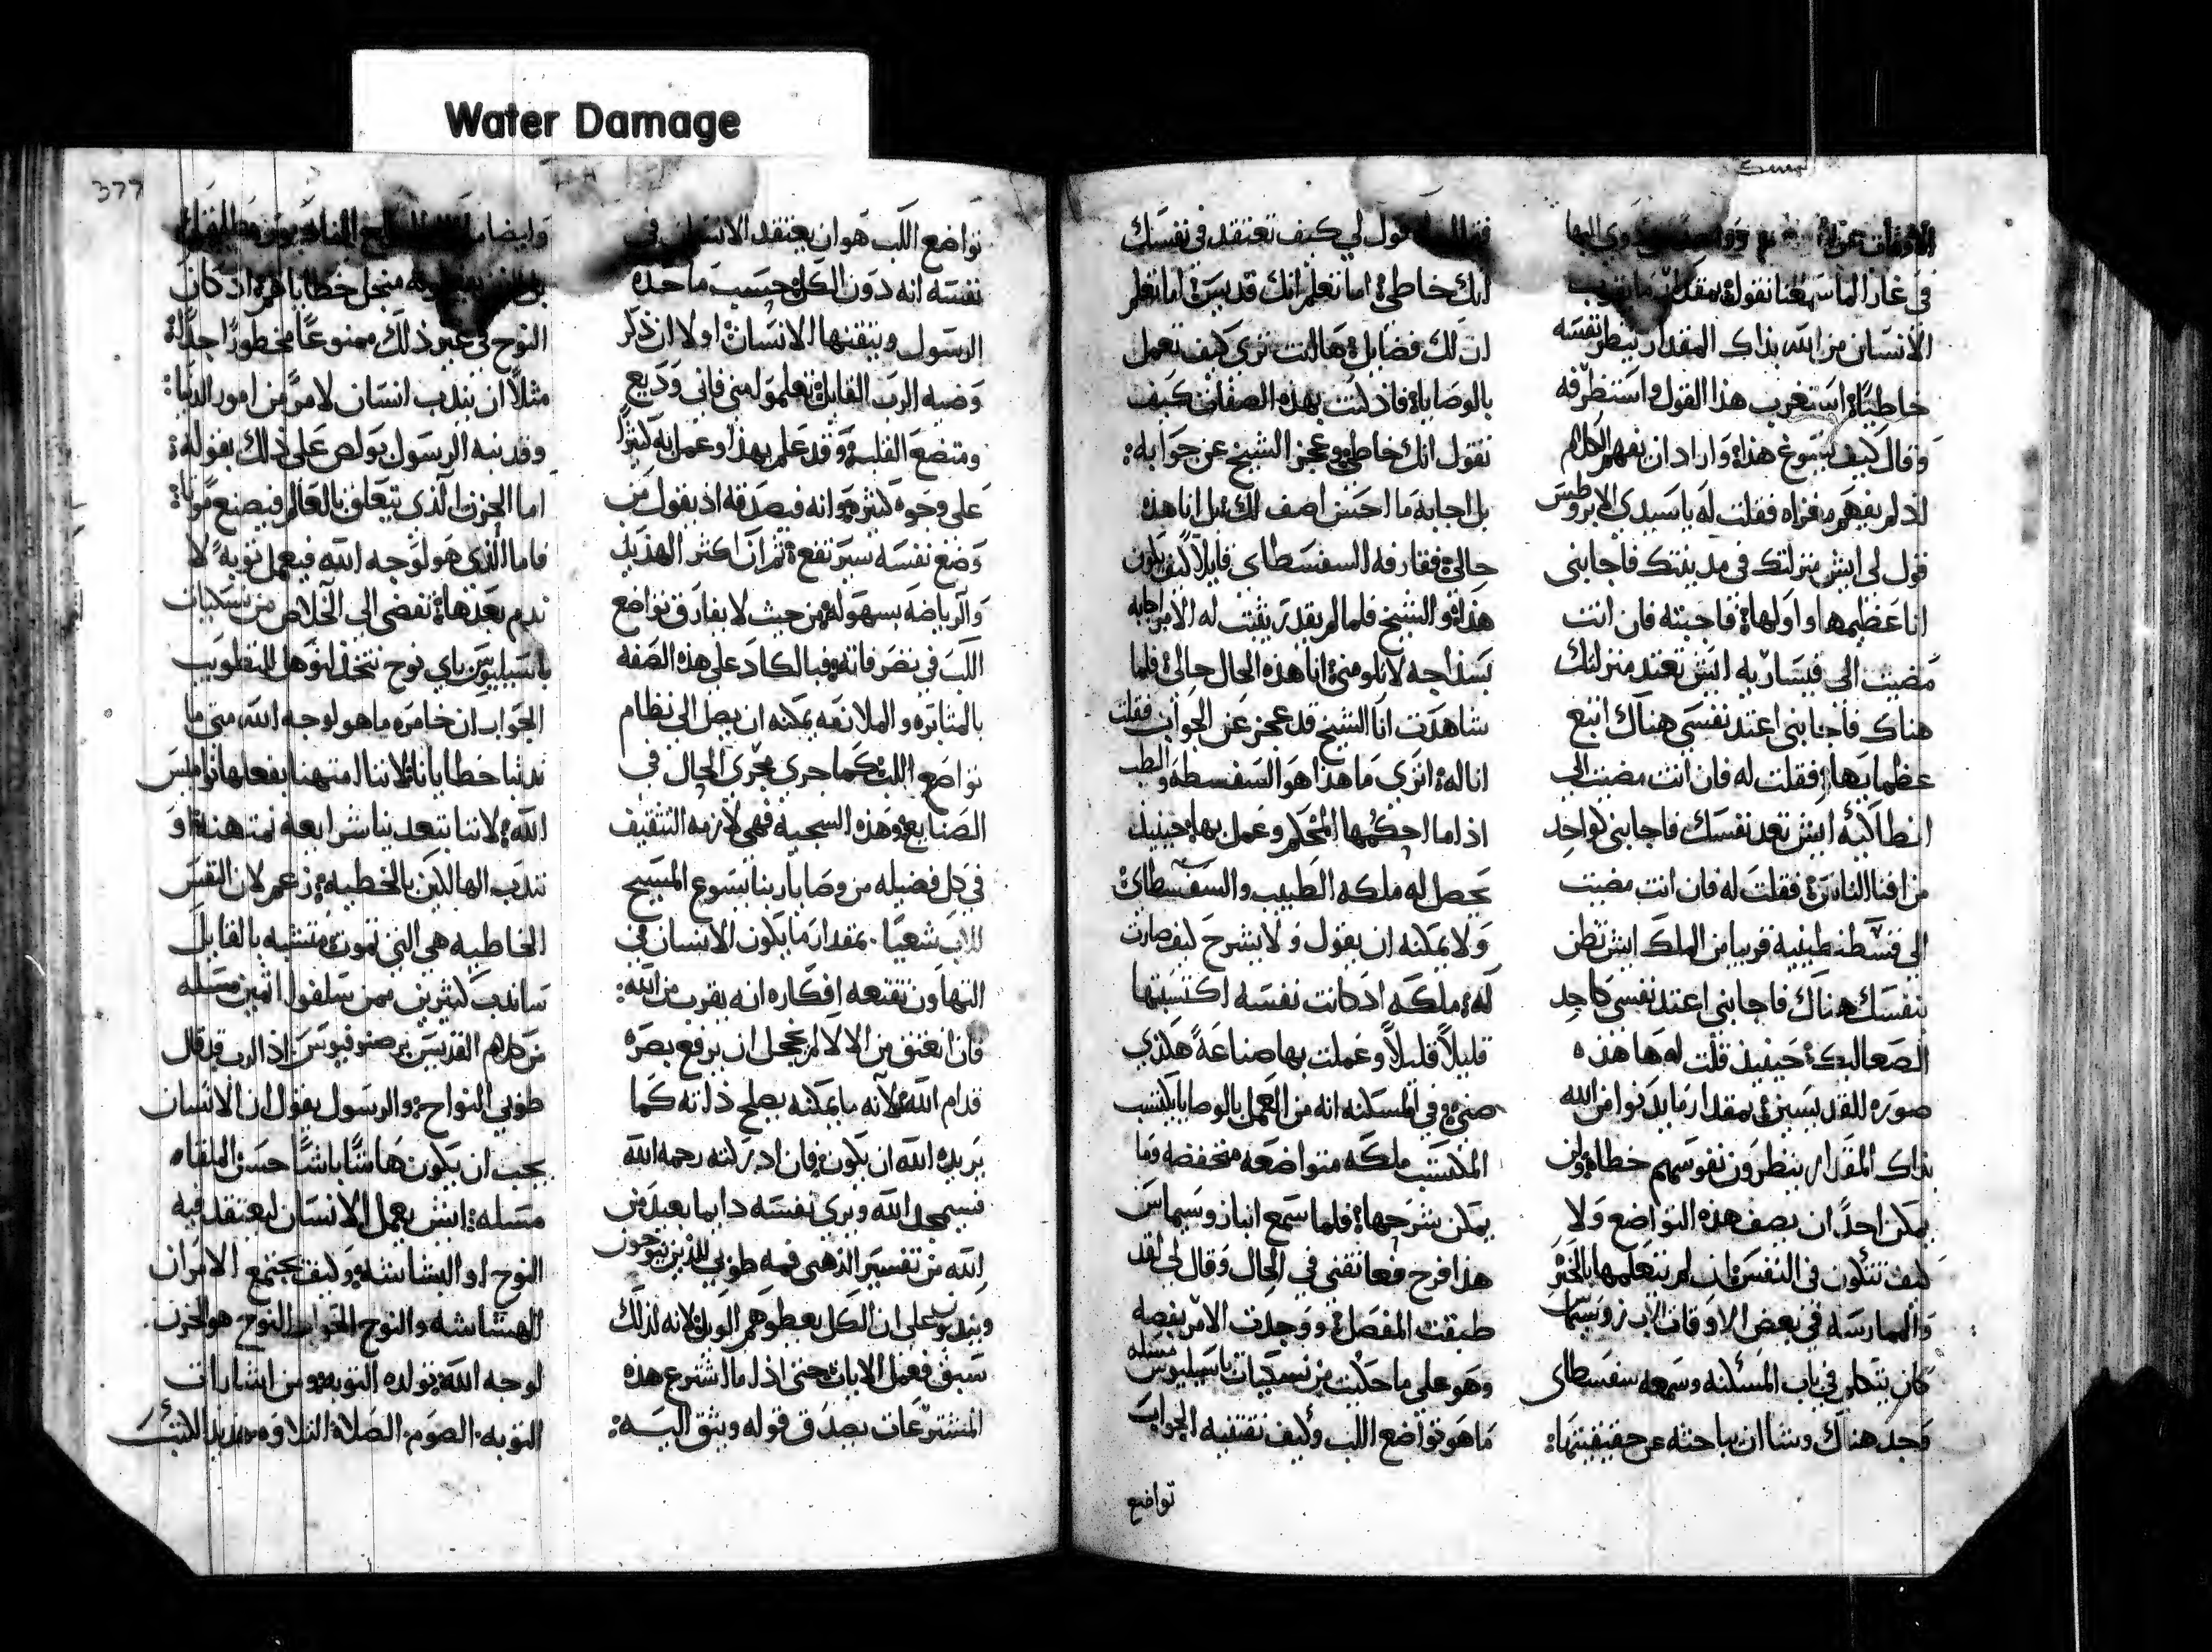 Water Damage
377
في غارا لما سمعنا نقوله بمقدار ما يقترب
الانسان من الله بذاك المقدار ينظر نفسه
خاطيًا استغرب هذا القول واستنظرفه
وقال كيف يسوغ هذا واراد ان يفهم الكلام
اذ لم يفهم مغزاه فقلت له يا سيدي الابروطس
قول لي ايش منزلتك في مدينتك فاجابني
انا عظيمها واولها فاجبته فان انت
مضيت الى قيساريه ايش تعتد منزلتك
هناك فاجابني اعتد نفسي هناك اتبع
عظمايها فقلت له فان انت مضيت الى
انطاكيه ايش تعد نفسك فاجابني كواحد
من افنا الناس فقلت له فان انت مضيت
الى قسطنطينيه قريبا من الملك ايش تظن
نفسك هناك فاجابني اعتد نفسي كاحد
الصعاليك حينيذ قلت له ها هذه
صوره القديسين بمقدار ما يدنوا من الله
بذاك المقدار ينظرون نفوسهم خطاه ولن
يمكن احدًا ان يصف هذه التواضع ولا
كيف تتكون في النفس ان لم نتعلمها بالخبر
والممارسه في بعض الاوقات الاب زوسيماس
كان يتكلم في باب المسكنه وسمعه سفسطاي
وجد هناك وشا ان يباحثه عن حقيقيتها
قول لي كيف تعتقد في نفسك
انك خاطي اما تعلم انك قديس اما تعلم
ان لك فضايل ها انت ترى كيف تعمل
بالوصايا فاذ كنت بهذه الصفات كيف
تقول انك خاطي وعجز الشيخ عن جوابه
بل اجابه ما احسن اصف لك بل انا هذه
حالي فقارفه السفسطاي قايلا كيف يكون
هذا والشيخ فلما لم يقدر يثبت له الامر اجابه
بسذاجه لا تلومني انا هذه الحال حالي فلما
شاهدت انا الشيخ قد عجز عن الجواب فقلت
انا له اترى ما هذا هو السفسطه والطب
اذا ما احكمها المحكم وعمل بها حينيذ
يحصل له ملكه الطبيب والسفسطاي
ولا يمكنه ان يقول ولا يشرح كيف صارت
له ملكه اذ كانت نفسه اكتسبتها
قليلاً قليلاً وعملت بها صناعةً هكذي
هي وفي المسكنه انه من العمل بالوصايا يكتسب
المكتسب ملكه متواضعه منخفضه وما
يمكن شرحها فلما سمع انبا زوسيماس
هذا فرح فعانقني في الحال وقال لي لقد
طبقت المفصل ووجدت الامر بفصه
وهو على ما حكيت من نسكيات باسيليوس مسله
ما هو تواضع اللب وكيف نقتفيه الجواب
تواضع
تواضع اللب هو ان يعتقد الانسان في
نفسه انه دون الكل حسب ما حده
الرسول ويتقنها الانسان اولا ان ذكر
وصيه الرب القايل تعلموا مني فاني وديع
ومتضع القلب وقد علم بهذا وعمل انه كثيرًا
على وجوه كثيره وانه فيصدقه اذ يقول من
وضع نفسه سيرتفع ثم ان اكثر الهذيذ
والرياضه بسهوله من حيث لا يفارق تواضع
اللب في تصرفاته فبالكاد على هذه الصفه
بالمثابره والملازمه يمكنه ان يصل الى نظام
تواضع اللب كما جرى مجرى الحال في
الصنايع وهذه السجيه فهي لازمه التثقيف
في كل فضيله من وصايا ربنا يسوع المسيح
للاب شعيا بمقدار ما يكون الانسان في
التهاون تقنعه افكاره انه يقرب من الله
فان انعتق من الالام لا يخجل ان يرفع بصره
قدام الله لانه ما يمكنه يصلح ذاته كما
يريده الله ان يكون فان ادركته رحمه الله
فسيمجد الله ويرى نفسه دايما بعيد من
الله من تفسير الذهبي فمه طوبى للذين ينوحون
ويندبون على ان الكل يعطوهم الويل لانه لذلك
سبق فعمل الايات حتى اذا ما اشترع هذه
المشترعات يصدق قوله ويثق اليه
النوح في غير ذلك ممنوعًا محظورًا جدًا
مثلاً ان يندب انسان لامر من امور الدنيا
وقد نبه الرسول بولص على ذلك بقوله
اما الحزن الذي يتعلق بالعالم فيصنع موتا
فاما الذي هو لوجه الله فيعمل توبةً لا
ندم بعدها تفضي الى الخلاص من نسكيات
باسيليوس باي نوح نتخذ لنوهل للتطويب
الجواب ان خامره ما هو لوجه الله متى ما
ندبنا خطايانا لاننا امتهنا بفعلها نواميس
الله لاننا بتعدينا شرايعه نمتهنه او
نندب الهالكين بالخطيه زعم لان النفس
الخاطيه هي التي تموت متشبه بالقايل
ساندب كثيرين ممن سلفوا اثمين مسله
من كلام القديس برصنوفيوس اذ الرب قد قال
طوبى النواح والرسول يقول ان الانسان
يجب ان يكون هاشًا باشًا حسن الملقاه
مسله ايش يعمل الانسان ليعتقد فيه
النوح او البشاشه وكيف يجتمع الامران
الهشاشه والنوح الجواب النوح هو الحزن
لوجه الله تولده التوبه ومن اشارات
التوبه الصوم الصلاه التلاوه